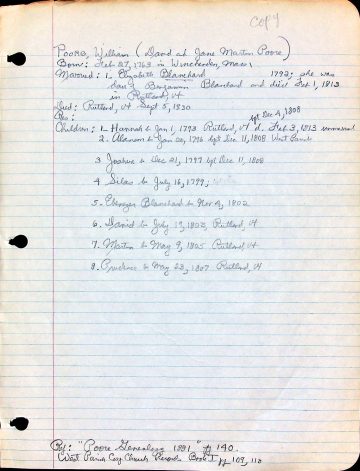 COPY
Poore, William (David at Jane Martin Poore)
Born: Feb 27, 1763 in Winchendon, Mass
Married: 1. Elizabeth Blanchard 1792; she was
dau. Benjamin Blanchard and died Feb 1, 1813
in Rutland, Vt
Died: Rutland, Vt Sept 5, 1830
bpt Dec 4, 1808
Children: 1. Hannah b Jan 1, 1793 Rutland, Vt d. Feb 3, 1813 unmarried
2. b Jan 20, 1796 bpt Dec 11, 1808 West Parish
3 Joshua b Dec 21, 1797 bpt Dec 11, 1808
4 Silas b July 16, 1799,
5. Ebenezer Blanchard b Nov 4, 1802
6. David b July 19, 1803, Rutland, Vt
7. Martin b May 9, 1805 Rutland, Vt
8. Prudence b May 28, 1807 Rutland, Vt
Ref: "Poore Genealogy 1881" p 140.
West Parish Cong Church Records Book I pp 109, 110